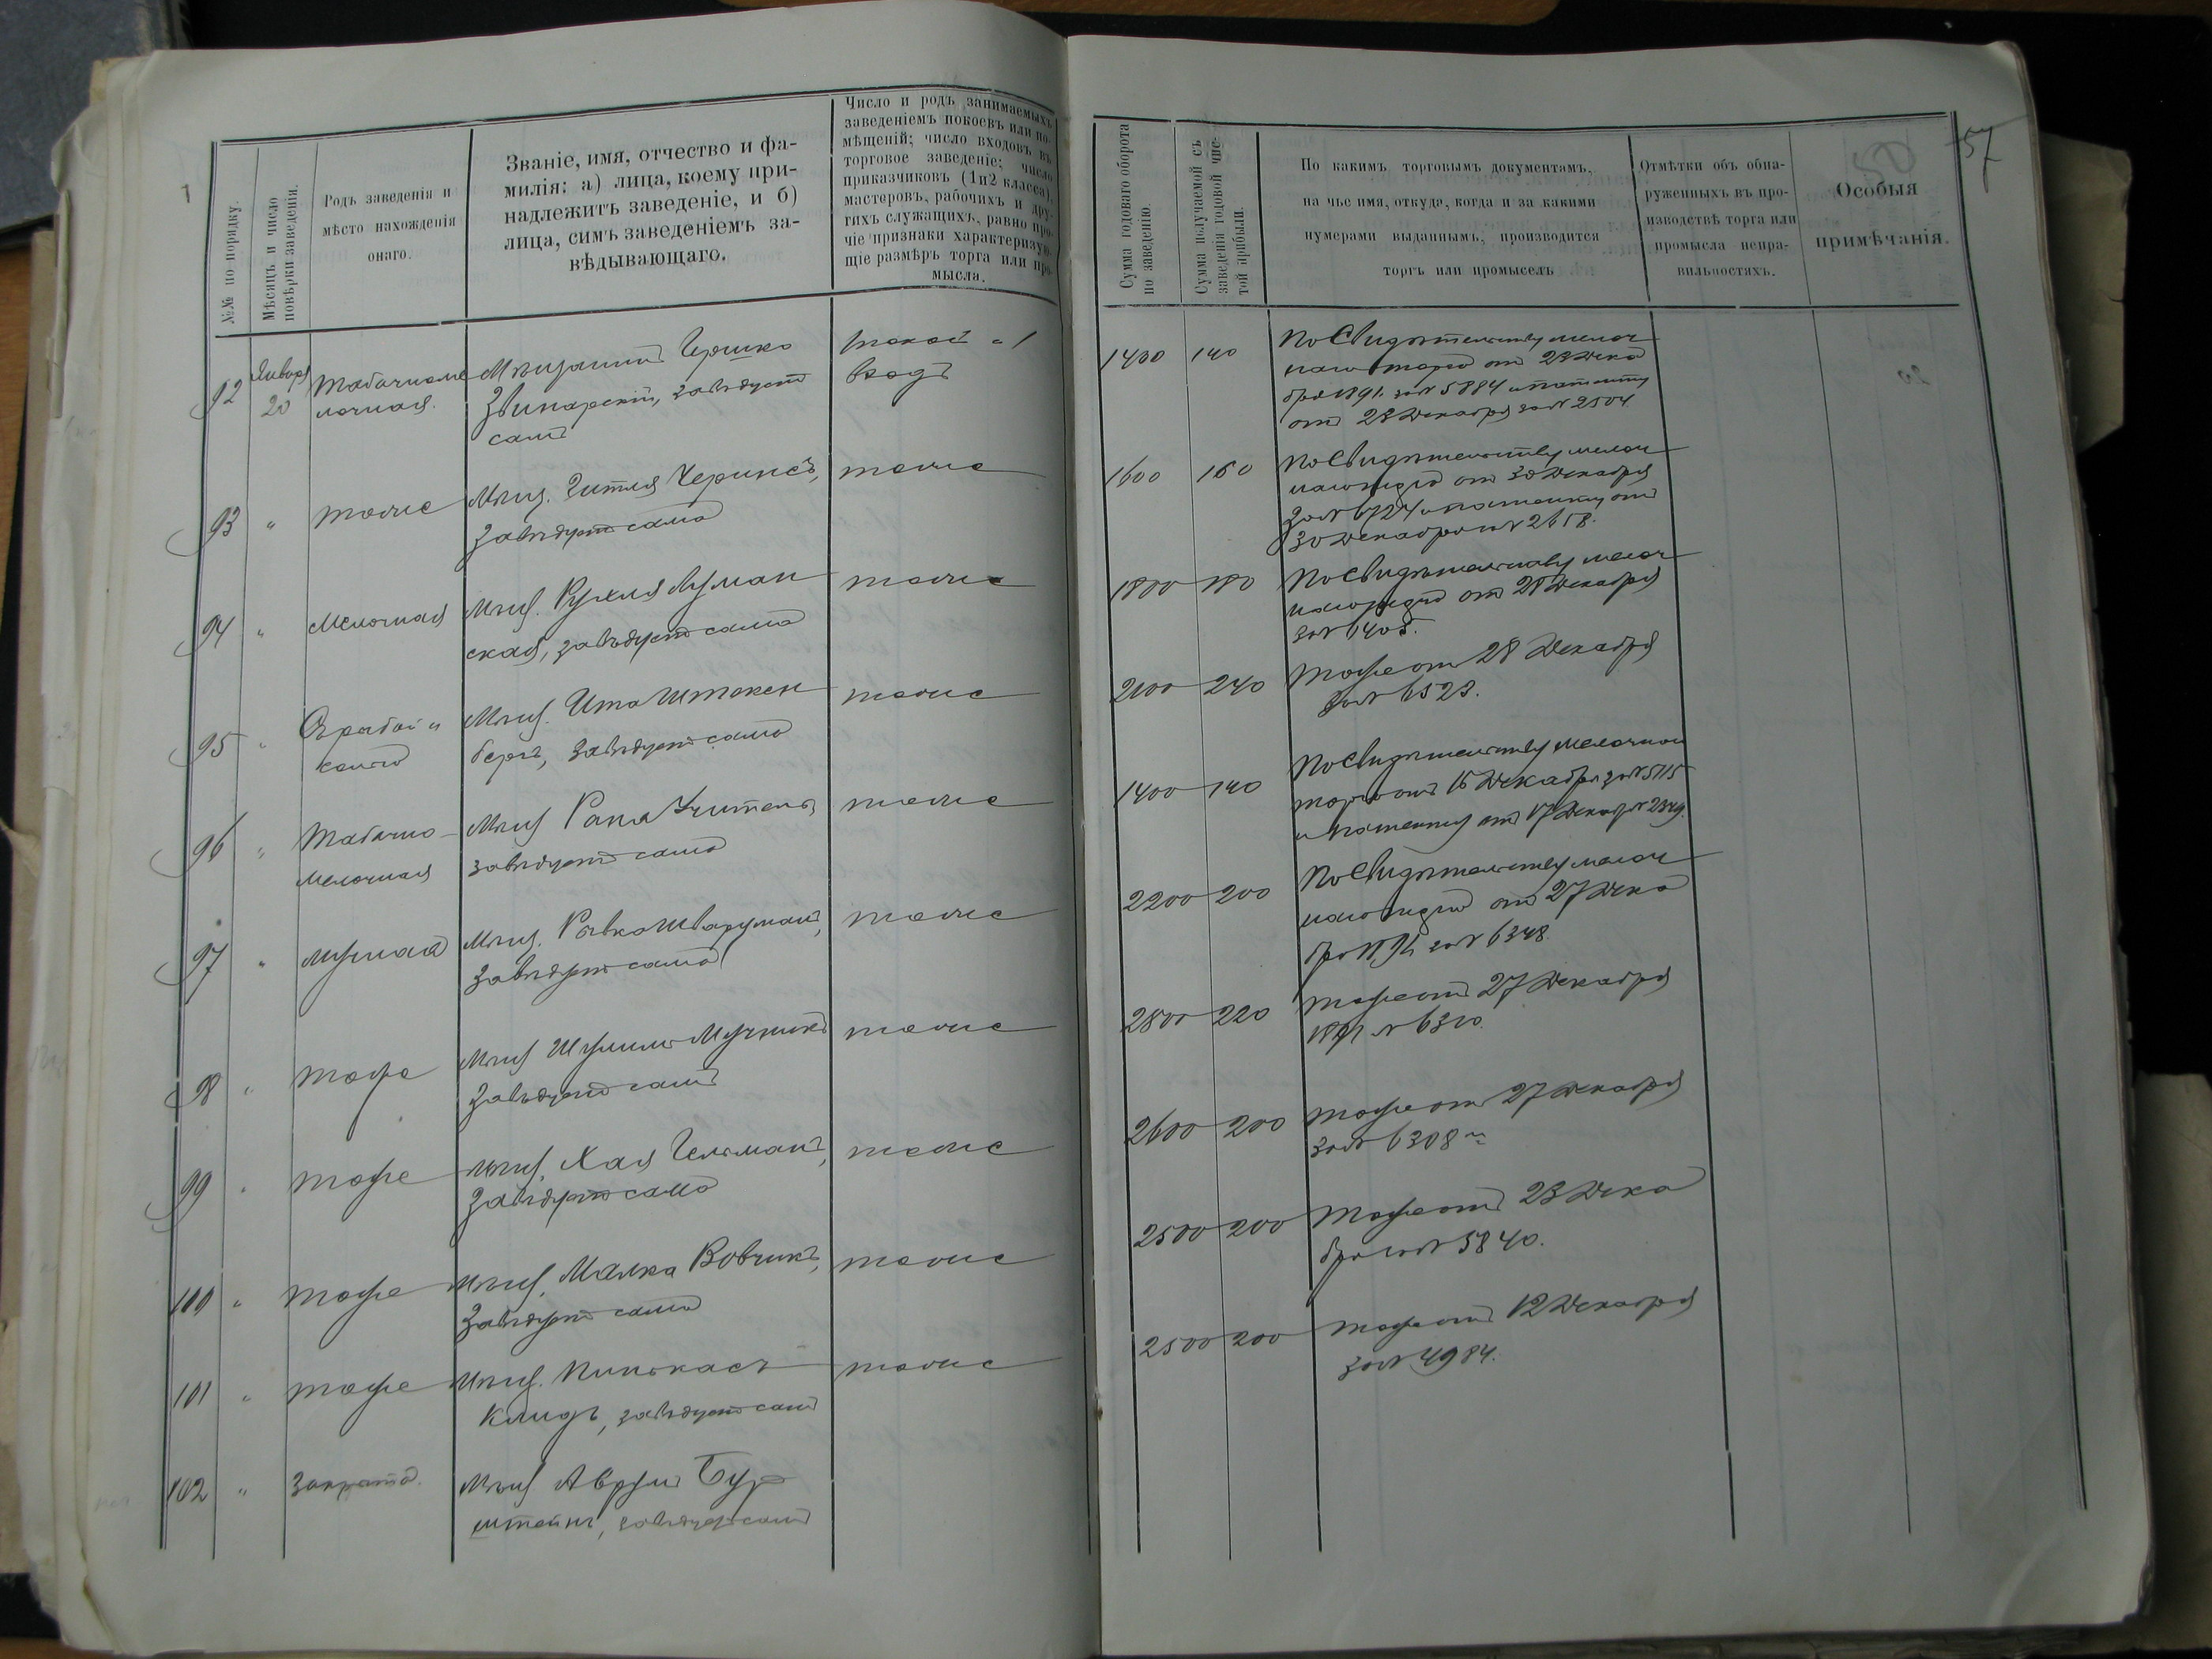 57
№№ по порядку.
Мѣсяцъ и число
повѣрки заведенія.
Родъ заведенія и
мѣсто нахожденія
онаго.
Званіе, имя, отчество и фа-
милія: а) лица, коему при-
надлежитъ заведеніе, и б)
лица, симъ заведеніемъ за-
вѣдывающаго.
Число и родъ занимаемыхъ
заведеніемъ покоевъ или по-
мѣщеній; число входовъ въ
торговое заведеніе; число
приказчиковъ (1 и 2 класса),
мастеровъ, рабочихъ и дру-
гихъ служащихъ, равно про-
чіе признаки характеризую-
щіе размѣръ торга или про-
мысла.
Сумма годоваго оборота
по заведенію.
Сумма получаемой съ
заведенія годовой чис-
той прибыли.
По какимъ торговымъ документамъ,
на чье имя, откуда, когда и за какими
нумерами выданнымъ, производится
торгъ или промыселъ
Отмѣтки объ обна-
руженныхъ въ про-
изводствѣ торга или
промысла непра-
вильностяхъ.
Особыя
примѣчанія.
92 Января 20 Табачноме
лочная.
Мѣщанинъ Гершко
Звинарскій, завѣдуетъ
самъ
покой - 1
входъ
1400 140
По свидѣтельству мелоч
наго торга от 23 Дека
бря 1891. за № 5884 и патенту
отъ 23 Декабря за № 2504
93 " тоже
Мѣщ. Зитля Черинсъ,
завѣдуетъ сама
тоже
1600 160
По свидѣтельству мелоч
наго торга от 30 Декабря
за № 6724 и патенту отъ
30 Декабря за № 2658.
94 " Мелочная
Мѣщ. Рухля Лузман
ская, завѣдуетъ сама
тоже
1800 180
По свидѣтельству мелоч
наго торга от 28 Декабря
за № 6405.
95 "
Мѣщ. Ита Штокен
бергъ, завѣдуетъ сама
тоже
2100 240
Тоже от 28 Декабря
за № 6523.
96 " Табачно-
мелочная
Мѣщ Рахля Учитель,
завѣдуетъ сама
тоже
1400 140
По свидѣтельству мелочнаго
торга отъ 16 Декабря за № 5115
и патенту от 17 Декабр № 2349.
97 " мучная
Мѣщ. Ривка Шварцманъ,
завѣдуетъ сама
тоже
2200 200
По свидѣтельству мелоч
наго торга от 27 Дека
бря 1891 за № 6348.
98 " тоже
Мѣщ Шулимъ Мучникъ
завѣдуетъ самъ
тоже
2800 220
Тоже отъ 27 Декабря
1891 № 6310.
99 " тоже
Мѣщ. Хая Гельманъ,
завѣдуетъ сама
тоже
2600 200
Тоже от 27 Декабря
за № 6308
100 " тоже
Мѣщ. Малка Вовчикъ,
завѣдуетъ сама
тоже
2500 200
Тоже отъ 23 Дека
бря за № 5840.
101 " тоже
Мѣщ. Пинькасъ
Клидъ, завѣдуетъ самъ
тоже
2500 200
Тоже отъ 12 Декабря
за № 4984.
102 " Закрыта.
Мѣщ Аврумъ Бур
штейнъ, завѣдуетъ самъ